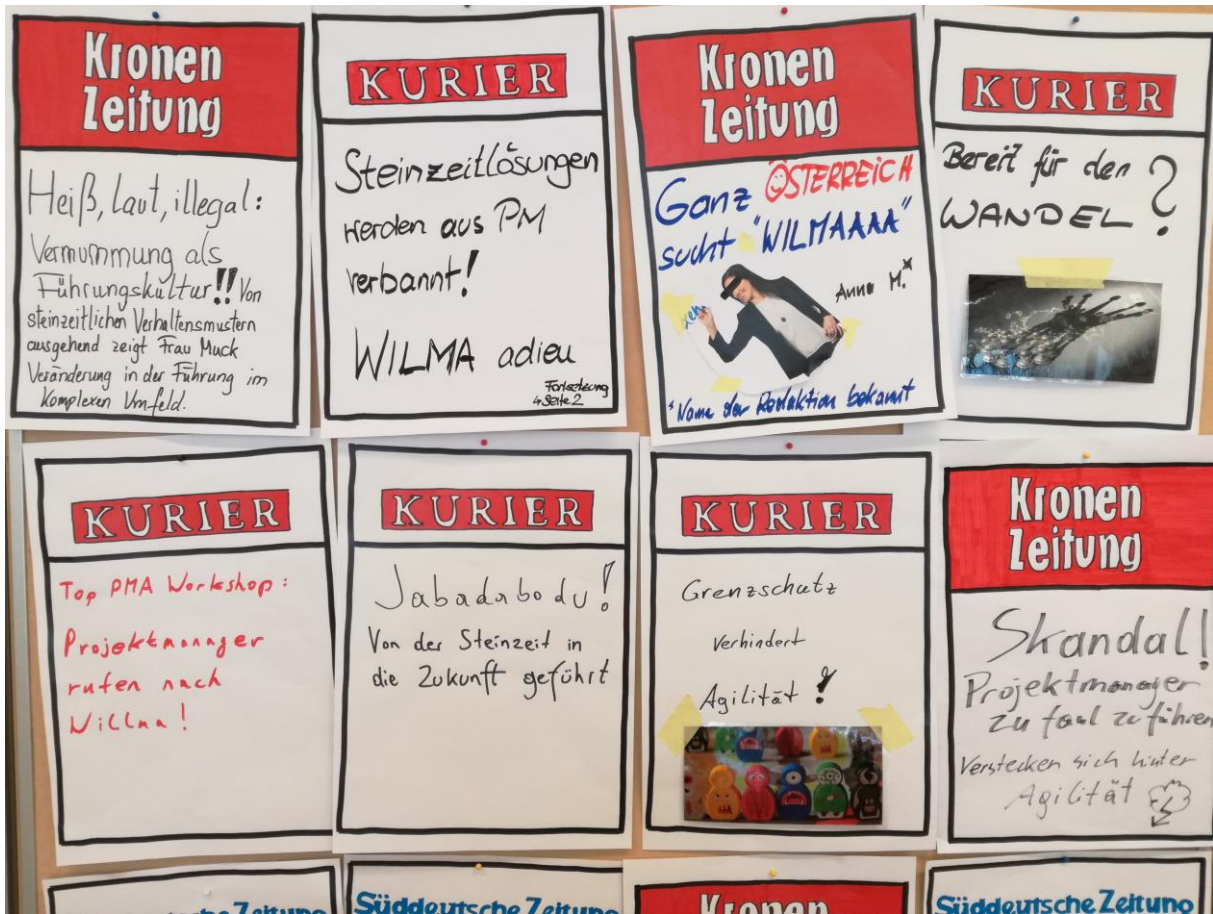 Kronen
Zeitung
Heiß, laut, illegal:
Vermummung als
Führungskultur!! Von
steinzeitlichen Verhaltensmustern
ausgehend zeigt Frau Muck
Veränderung in der Führung im
Komplexen Umfeld.
KURIER
Steinzeitlösungen
werden aus PM
verbannt!
WILMA adieu
Fortsetzung
Seite 2
Kronen
Zeitung
Ganz ÖSTERREICH
sucht "WILMAAAA"
Anna M.*
*Name der Redaktion bekannt
KURIER
Bereit für den
WANDEL?
KURIER
Top PMA Workshop:
Projektmanager
rufen nach
Willma!
KURIER
Jabadabadu!
Von der Steinzeit in
die Zukunft geführt
KURIER
Grenzschutz
verhindert
Agilität!
Kronen
Zeitung
Skandal!
Projektmanager
zu faul zu führen
Verstecken sich hinter
Agilität
Zeitung
Süddeutsche Zeitung
Kronen
Süddeutsche Zeitung